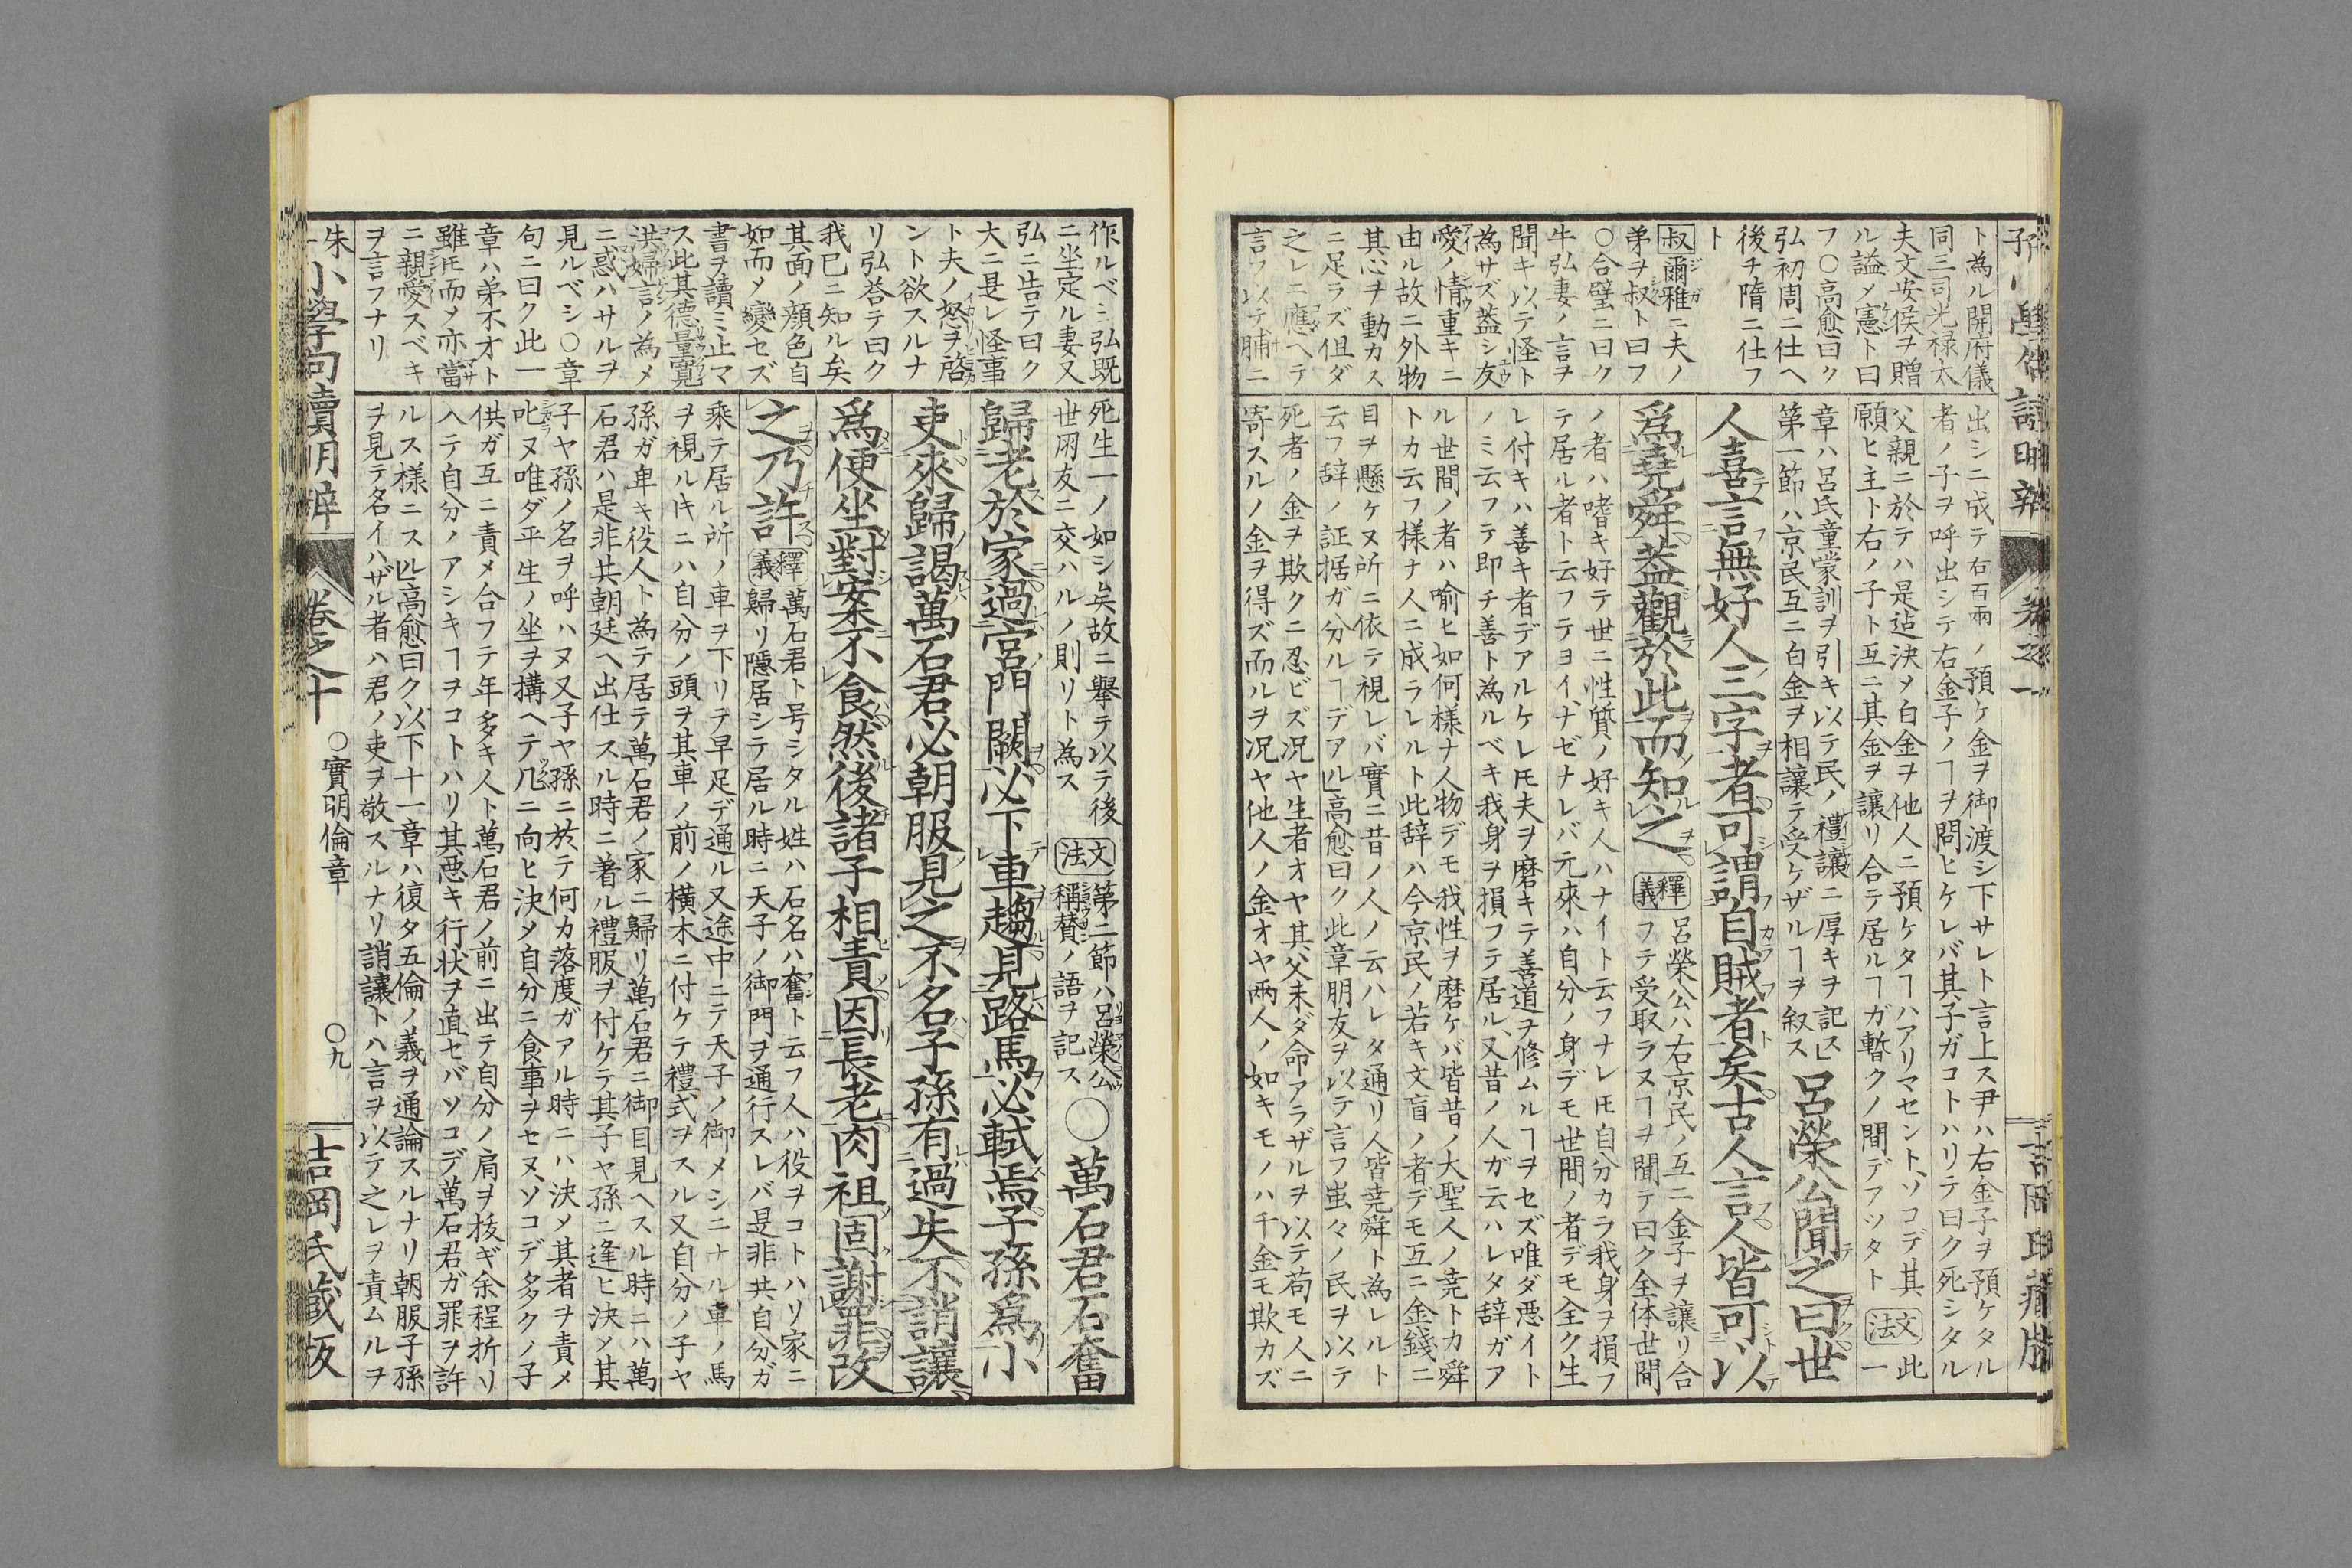 ト為ル開府儀
同三司光禄大
夫文安侯ヲ贈
ル謚〆憲ト曰
フ〇高愈曰ク
弘初周ニ仕ヘ
後チ隋ニ仕フ
ト
叔爾雅ニ夫ノ
弟ヲ叔ト曰フ
〇合璧ニ曰ク
牛弘妻ノ言ヲ
聞キ以テ怪ト
為サズ蓋シ友
愛ノ情重キニ
由ル故ニ外物
其心ヲ動カス
ニ足ラズ但ダ
之レニ應ヘテ
言フ以テ脯ニ
出シニ成テ右百兩ノ預ケ金ヲ御渡シ下サレト言上ス尹ハ右金子ヲ預ケタル
者ノ子ヲ呼出シテ右金子ノヿヲ問ヒケレバ其子ガコトハリテ曰ク死シタル
父親ニ於テハ是迠決〆白金ヲ他人ニ預ケタヿハアリマセント、ソコデ其
願ヒ主ト右ノ子ト互ニ其金ヲ讓リ合テ居ルヿガ暫クノ間デアツタト
文法
此
一
章ハ呂氏童蒙訓ヲ引キ以テ民ノ禮讓ニ厚キヲ記ス」
第一節ハ京民互ニ白金ヲ相讓テ受ケザルヿヲ叙ス
呂榮公聞之曰世
人喜言無好人三字者可謂自賊者矣古人言人皆可以
為堯舜蓋觀於此而知之
釋義
呂榮公ハ右京民ノ互ニ金子ヲ讓リ合
フテ受取ラヌヿヲ聞テ曰ク全体世間
ノ者ハ嗜キ好テ世ニ性質ノ好キ人ハナイト云フナレ𪜈自分カラ我身ヲ損フ
テ居ル者ト云フテヨイ、ナゼナレバ元來ハ自分ノ身デモ世間ノ者デモ全ク生
レ付キハ善キ者デアルケレ𪜈夫ヲ磨キテ善道ヲ修ムルヿヲセズ唯ダ悪イト
ノミ云フテ即チ善ト為ルベキ我身ヲ損フテ居ル、又昔ノ人ガ云ハレタ辞ガア
ル世間ノ者ハ喻ヒ如何様ナ人物デモ我性ヲ磨ケバ皆昔ノ大聖人ノ堯トカ舜
トカ云フ様ナ人ニ成ラレルト此辞ハ今京民ノ若キ文盲ノ者デモ互ニ金錢ニ
目ヲ懸ケヌ所ニ依テ視レバ實ニ昔ノ人ノ云ハレタ通リ人皆堯舜ト為レルト
云フ辞ノ証据ガ分ルヿデアル」高愈曰ク此章朋友ヲ以テ言フ蚩々ノ民ヲ以テ
死者ノ金ヲ欺クニ忍ビズ况ヤ生者オヤ其父未ダ命アラザルヲ以テ苟モ人ニ
寄スルノ金ヲ得ズ而ルヲ况ヤ他人ノ金オヤ兩人ノ如キモノハ千金モ欺カズ
作ルベシ弘既
ニ坐定ル妻又
弘ニ告テ曰ク
大ニ是レ怪事
ト夫ノ怒ヲ啓
ント欲スルナ
リ弘荅テ曰ク
我已ニ知ル矣
其面ノ顔色自
如而〆變セズ
書ヲ讀ミ止マ
ス此其德量寛
洪婦言ノ為〆
ニ惑ハサルヲ
見ルベシ〇章
句ニ曰ク此一
章ハ弟不オト
雖𪜈而〆亦當
ニ親愛スベキ
ヲ言フナリ
死生一ノ如シ矣故ニ舉テ以テ後
世朋友ニ交ハルノ則リト為ス
文法
第二節ハ呂榮公
稱賛ノ語ヲ記ス
〇萬石君石奮
歸老於家過宮門闕必下車趨見路馬必軾焉子孫為小
吏來歸謁萬石君必朝服見之不名子孫有過失不誚讓
為便坐對案不食然後諸子相責因長老肉袒固謝罪改
之乃許
釋義
萬石君ト号シタル姓ハ石名ハ奮ト云フ人ハ役ヲコトハリ家ニ
歸リ隠居シテ居ル時ニ天子ノ御門ヲ通行スレバ是非共自分ガ
乘テ居ル所ノ車ヲ下リテ早足デ通ル又途中ニテ天子ノ御メシニナル車ノ馬
ヲ視ル𪜈ニハ自分ノ頭ヲ其車ノ前ノ横木ニ付ケテ禮式ヲスル又自分ノ子ヤ
孫ガ卑キ役人ト為テ居テ萬石君ノ家ニ歸リ萬石君ニ御目見ヘスル時ニハ萬
石君ハ是非共朝廷ヘ出仕スル時ニ着ル禮服ヲ付ケテ其子ヤ孫ニ逢ヒ決〆其
子ヤ孫ノ名ヲ呼ハヌ又子ヤ孫ニ於テ何カ落度ガアル時ニハ決〆其者ヲ責〆
叱ヌ唯ダ平生ノ坐ヲ搆ヘテ几ニ向ヒ決〆自分ニ食事ヲセヌ、ソコデ多クノ子
供ガ互ニ責メ合フテ年多キ人ト萬石君ノ前ニ出テ自分ノ肩ヲ袒ギ余程折リ
入テ自分ノアシキヿヲコトハリ其悪キ行状ヲ直セバソコデ萬石君ガ罪ヲ許
ルス様ニスル」高愈曰ク以下十一章ハ復タ五倫ノ義ヲ通論スルナリ朝服子孫
ヲ見テ名イハザル者ハ君ノ吏ヲ敬スルナリ誚讓トハ言ヲ以テ之レヲ責ムルヲ
小學句讀明辨
卷之十
〇實明倫章
〇九
吉岡氏藏板